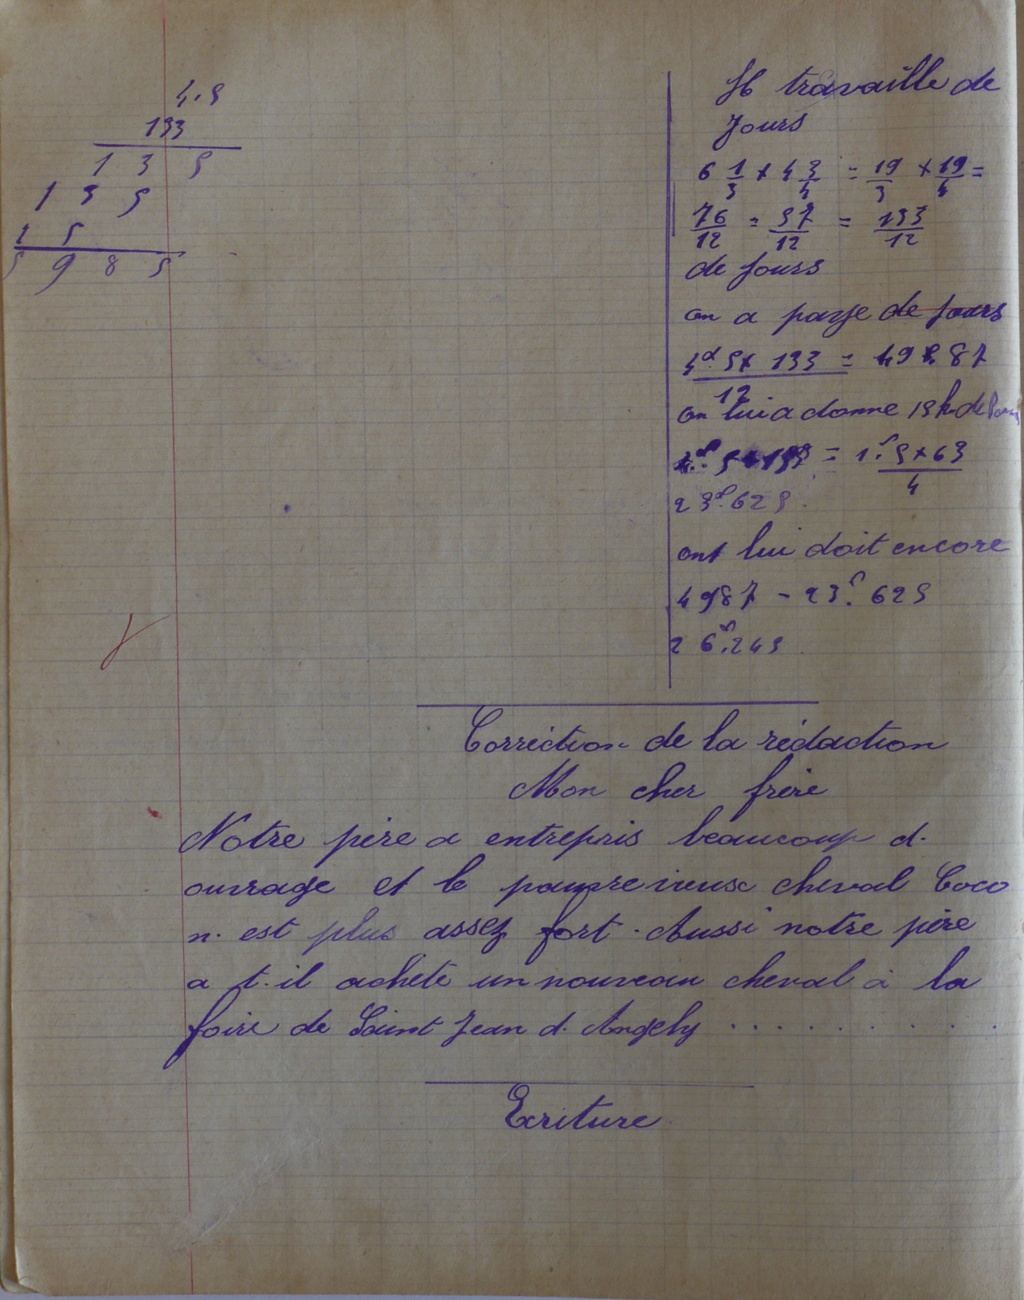 4.5
133
1 3 5
1 3 5
1 5
5 9 8 5
Il travaille de
jours
6 1/3 + 4 3/4 = 19/3 + 19/4 =
76/12 = 57/12 = 133/12
de jours
on a paye de jours
4 5 x 133 / 12 = 49 87
on lui a donne 15 k de
= 1.5 x 63 / 4
23f.625
ont lui doit encore
4987 - 23f.625
26f.245
Correction de la rédaction
Mon cher frère
Notre père a entrepris beaucoup d.
ouvrage et le pauvre vieux cheval Coco
n. est plus assez fort. Aussi notre père
a t. il acheté un nouveau cheval à la
foire de Saint Jean d. Angely . . . . . . . . . . .
Ecriture